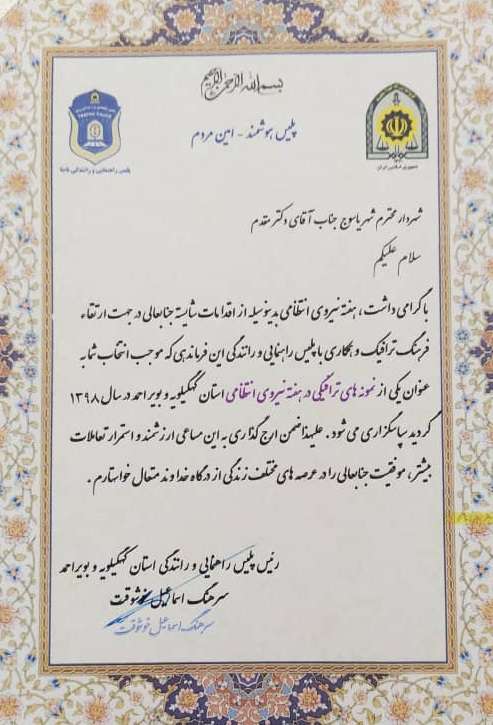 بسم الله الرحمن الرحیم
TRAFFIC POLICE
پلیس راهنمایی و رانندگی ناجا
جمهوری اسلامی ایران
پلیس هوشمند - امین مردم
شهردار محترم شهر یاسوج جناب آقای دکتر مقدم
سلام علیکم
با گرامی داشت، هفته نیروی انتظامی بدینوسیله از اقدامات شایسته جنابعالی در جهت ارتقاء
فرهنگ ترافیک و همکاری با پلیس راهنمایی و رانندگی این فرماندهی که موجب انتخاب شما به
عنوان یکی از نمونه های ترافیکی در هفته نیروی انتظامی استان کهگیلویه و بویراحمد در سال ۱۳۹۸
گردید سپاسگزاری می شود. علیهذا ضمن ارج گذاری به این مساعی ارزشمند و استمرار تعاملات
بیشتر، موفقیت جنابعالی را در عرصه های مختلف زندگی از درگاه خداوند متعال خواستارم.
رئیس پلیس راهنمایی و رانندگی استان کهگیلویه و بویراحمد
سرهنگ اسماعیل خوشوقت
سرهنگ اسماعیل خوشوقت